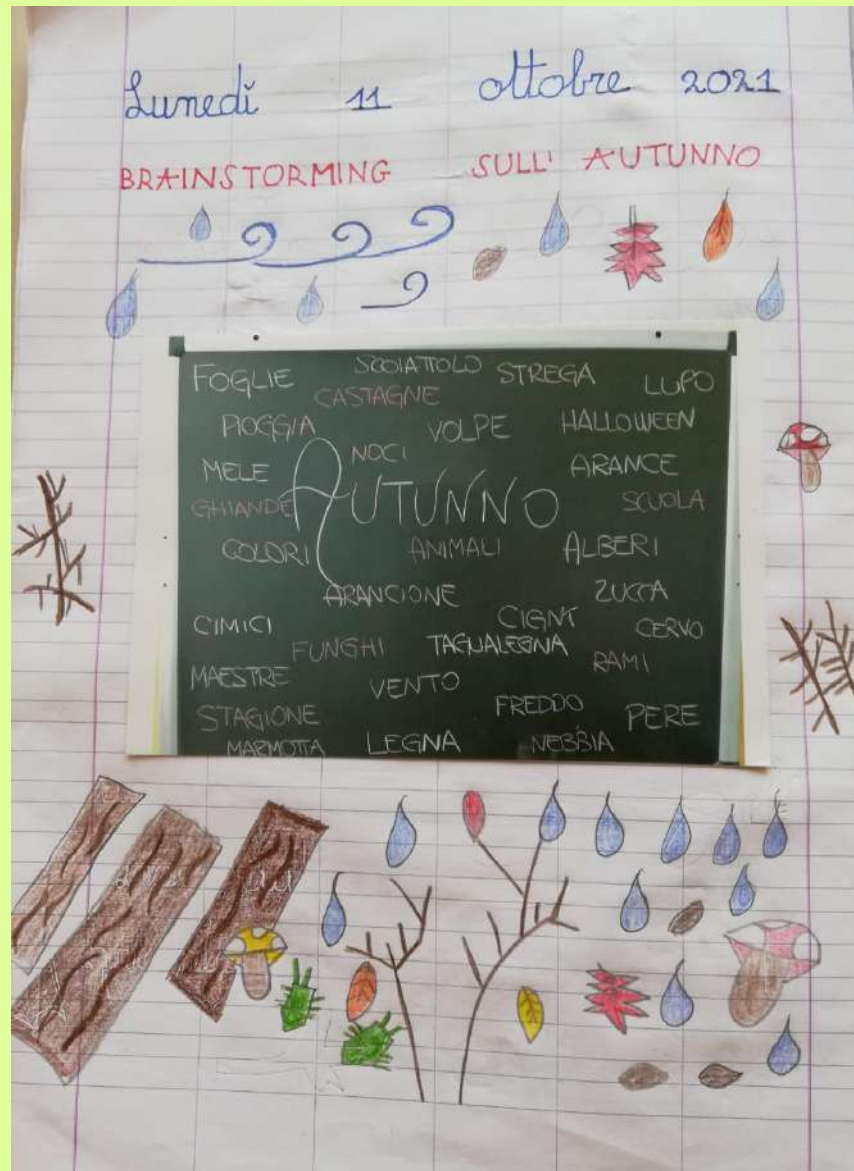 Lunedì 11 ottobre 2021
BRAINSTORMING SULL' AUTUNNO
FOGLIE SCOIATTOLO STREGA LUPO
CASTAGNE
PIOGGIA VOLPE HALLOWEEN
MELE NOCI ARANCE
GHIANDE AUTUNNO SCUOLA
COLORI ANIMALI ALBERI
ARANCIONE ZUCCA
CIMICI CIGNI CERVO
FUNGHI TAGLIALEGNA RAMI
MAESTRE VENTO
STAGIONE FREDDO PERE
MARMOTTA LEGNA NEBBIA